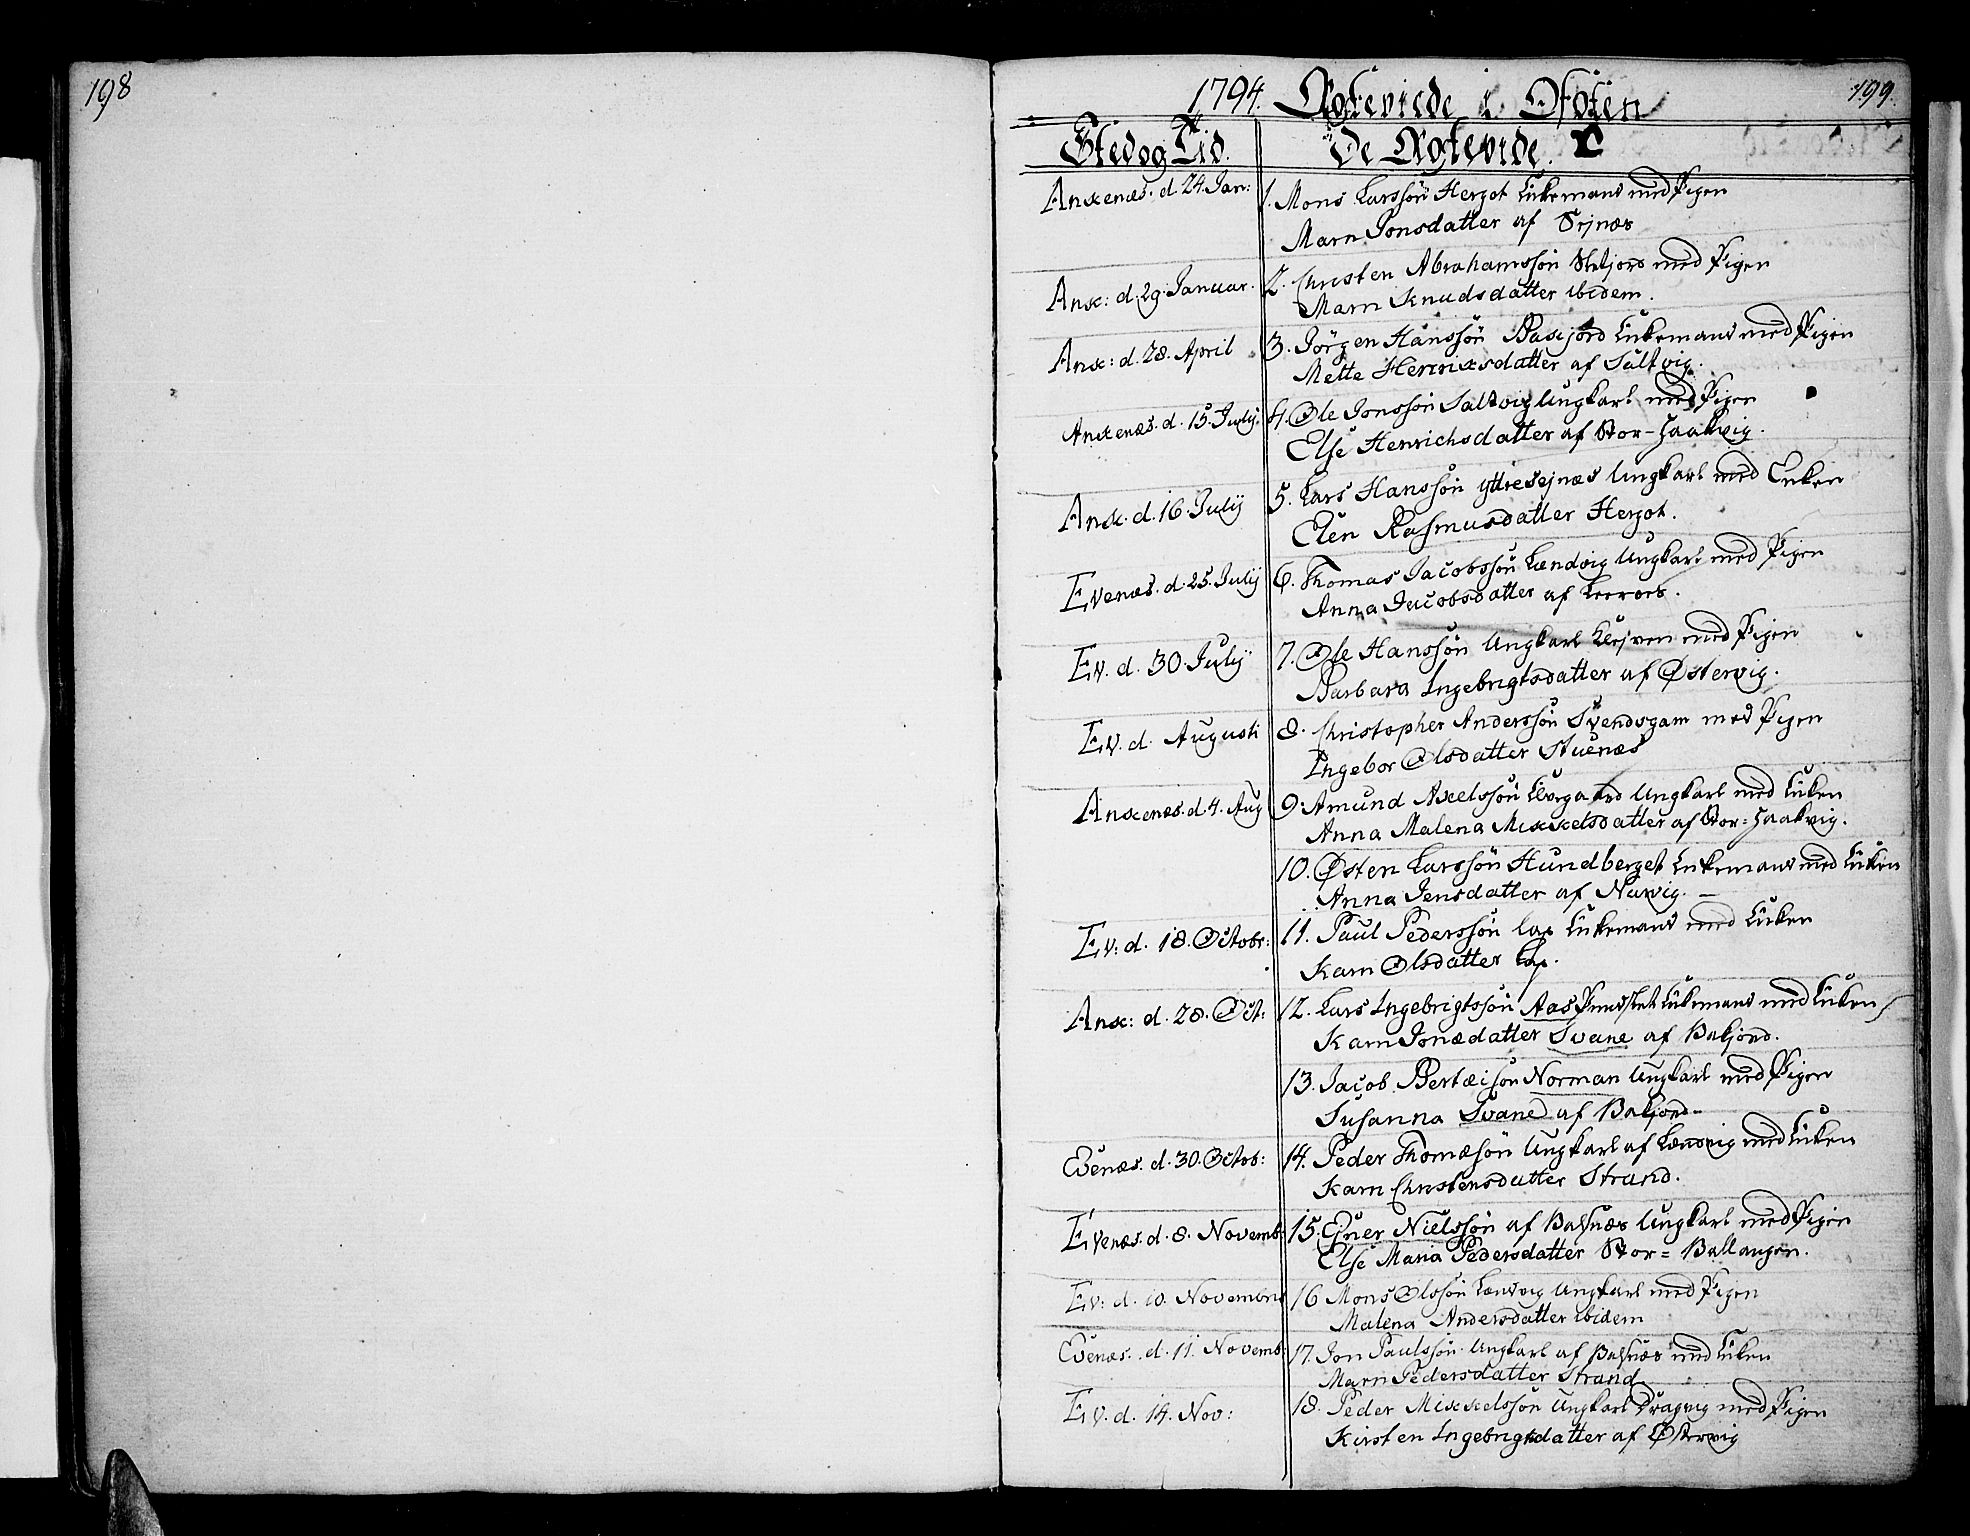 198
199.
1794. Ægtevirde i Ofoten
Sted og Tid. De Ægtevide.
Anxenæs. d. 24. Jan: 1. Mons Larssøn Hergot Enkemand med Pigen
Marn Jonsdatter af Sejnæs
Anx: d. 29. Januar. 2. Christen Abrahamssøn Skjord med Pigen
Marn Knudsdatter ibidem.
Anx: d. 28. April 3. Jörgen Hanssön Basejord Enkemand med Pigen
Mette Henrixsdatter af Saltvig.
Anxenæs. d. 15. Julij. 4. Ole Jonssön Saltvig Ungkarl med Pigen
Else Henrichsdatter af Stor-Haakvig.
Anx. d. 16. Julij 5. Lars Hanssön yttresejnæs Ungkarl med Enken
Elen Rasmusdatter Hergot.
Evenæs. d. 25. Julij 6. Thomas Jacobssön Lændvig Ungkarl med Pigen
Anna Jacobsdatter af
Ev. d. 30. Julij 7. Ole Hanssön Ungkarl Klejven med Pigen
Barbara Ingebrigtsdatter af Østervig.
Ev. d. Augusti 8. Christopher Anderssön Svendsgam med Pigen
Ingebor Olsdatter Stuenæs
Anxenæs. d. 4. Aug 9. Amund Axelssön Ungkarl med Enken
Anna Malena Mixkelsdatter af Stor=Haakvig.
10. Østen Larssön Hundberget Enkemand med Enken
Anna Jensdatter af Narvig.
Ev: d. 18. Octobr: 11. Paul Pederssön lap Enkemand med Enken
Karn Olsdatter Lap.
Anx: d. 28. Oct: 12. Lars Ingebrigtssön Aas Enkemand med Enken
Karn Jonædatter Svane af Baljord.
13. Jacob Bertæisön Norman Ungkarl med Pigen
Susanna Svane af Baljord
Evenæs. d. 30. Octob: 14. Peder Thomæsön Ungkarl af Lændvig med Enken
Karn Christensdatter Strand.
Evenæs. d. 8. Novemb: 15. Ejner Nielssön af Balsnæs Ungkarl med Pigen
Else Maria Pedersdatter Stor=Ballangen.
Ev: d. 10. Novembris 16 Mons Olssön Lændvig Ungkarl med Pigen
Malena Andersdatter ibidem
Evenæs. d. 11. Novemb: 17. Jon Paulssön Ungkarl af Balsnæs med Enken
Marn Pedersdatter Strand
Ev. d. 14. Nov: 18. Peder Mixkelssön Ungkarl Dragvig med Pigen
Kirsten Ingebrigtsdatter af Østervig